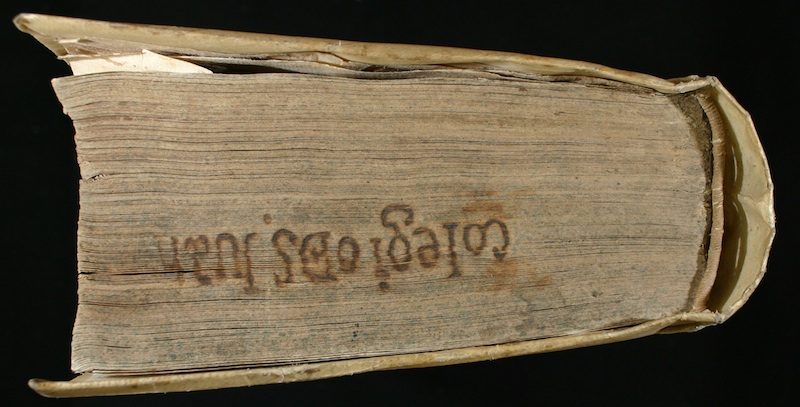 colegioDS Juan